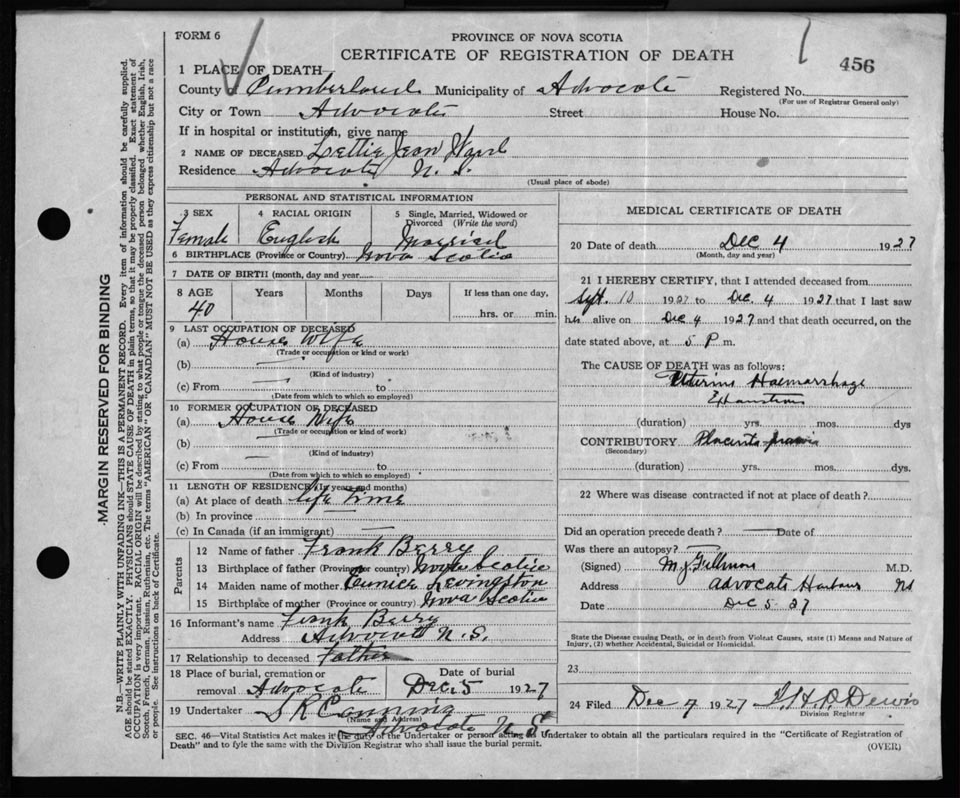 FORM 6
PROVINCE OF NOVA SCOTIA
CERTIFICATE OF REGISTRATION OF DEATH
456
1 PLACE OF DEATH—
County Cumberland Municipality of Advocate Registered No.
(For use of Registrar General only)
City or Town Advocate Street House No.
If in hospital or institution, give name
2 NAME OF DECEASED Lettie Jean Ward
Residence Advocate N. S.
(Usual place of abode)
PERSONAL AND STATISTICAL INFORMATION
3 SEX
Female
4 RACIAL ORIGIN
English
5 Single, Married, Widowed or Divorced (Write the word)
Married
6 BIRTHPLACE (Province or Country) Nova Scotia
7 DATE OF BIRTH (month, day and year
8 AGE Years Months Days If less than one day,
40 hrs. or min.
9 LAST OCCUPATION OF DECEASED
(a) House Wife
(Trade or occupation or kind or work)
(b)
(Kind of industry)
(c) From to
(Date from which to which so employed)
10 FORMER OCCUPATION OF DECEASED
(a) House Wife
(Trade or occupation or kind of work)
(b)
(Kind of industry)
(c) From to
(Date from which to which so employed)
11 LENGTH OF RESIDENCE (In years and months)
(a) At place of death life Time
(b) In province
(c) In Canada (if an immigrant)
Parents
12 Name of father Frank Berry
13 Birthplace of father (Province or country) Nova Scotia
14 Maiden name of mother Eunice Levingston
15 Birthplace of mother (Province or country) Nova Scotia
16 Informant's name Frank Berry
Address Advocate N. S.
17 Relationship to deceased Father
18 Place of burial, cremation or removal Advocate
Date of burial
Dec. 5 1927
19 Undertaker S R Canning
(Name and Address)
Advocate N. S.
MEDICAL CERTIFICATE OF DEATH
20 Date of death Dec 4 1927
(Month, day and year)
21 I HEREBY CERTIFY, that I attended deceased from
Sept. 10 1927 to Dec. 4 1927 that I last saw
her alive on Dec 4 1927 and that death occurred, on the
date stated above, at 5 P m.
The CAUSE OF DEATH was as follows:
Uterine Haemorrhage
Exhaustion
(duration) yrs. mos. dys
CONTRIBUTORY Placenta
(Secondary)
(duration) yrs. mos. dys.
22 Where was disease contracted if not at place of death?
Did an operation precede death? Date of
Was there an autopsy?
(Signed) M. J. Fillmore M.D.
Address Advocate Harbour NS
Date Dec 5 27
State the Disease causing Death, or in death from Violent Causes, state (1) Means and Nature of
Injury, (2) whether Accidental, Suicidal or Homicidal.
23
24 Filed Dec 7 1927 Dewis
Division Registrar
SEC. 46—Vital Statistics Act makes it the duty of the Undertaker or person acting as Undertaker to obtain all the particulars required in the "Certificate of Registration of
Death" and to fyle the same with the Division Registrar who shall issue the burial permit.
(OVER)
MARGIN RESERVED FOR BINDING
N.B.—WRITE PLAINLY WITH UNFADING INK—THIS IS A PERMANENT RECORD. Every item of information should be carefully supplied.
AGE should be stated EXACTLY. PHYSICIANS should STATE CAUSE OF DEATH in plain terms, so that it may be properly classified. Exact statement of
OCCUPATION is very important. RACIAL ORIGIN will be described by stating to what people or tongue the deceased person belonged whether English, Irish,
Scotch, French, German, Russian, Ruthenian, etc. The terms "AMERICAN" OR "CANADIAN" MUST NOT BE USED as they express citizenship but not a race
or people. See instructions on back of Certificate.